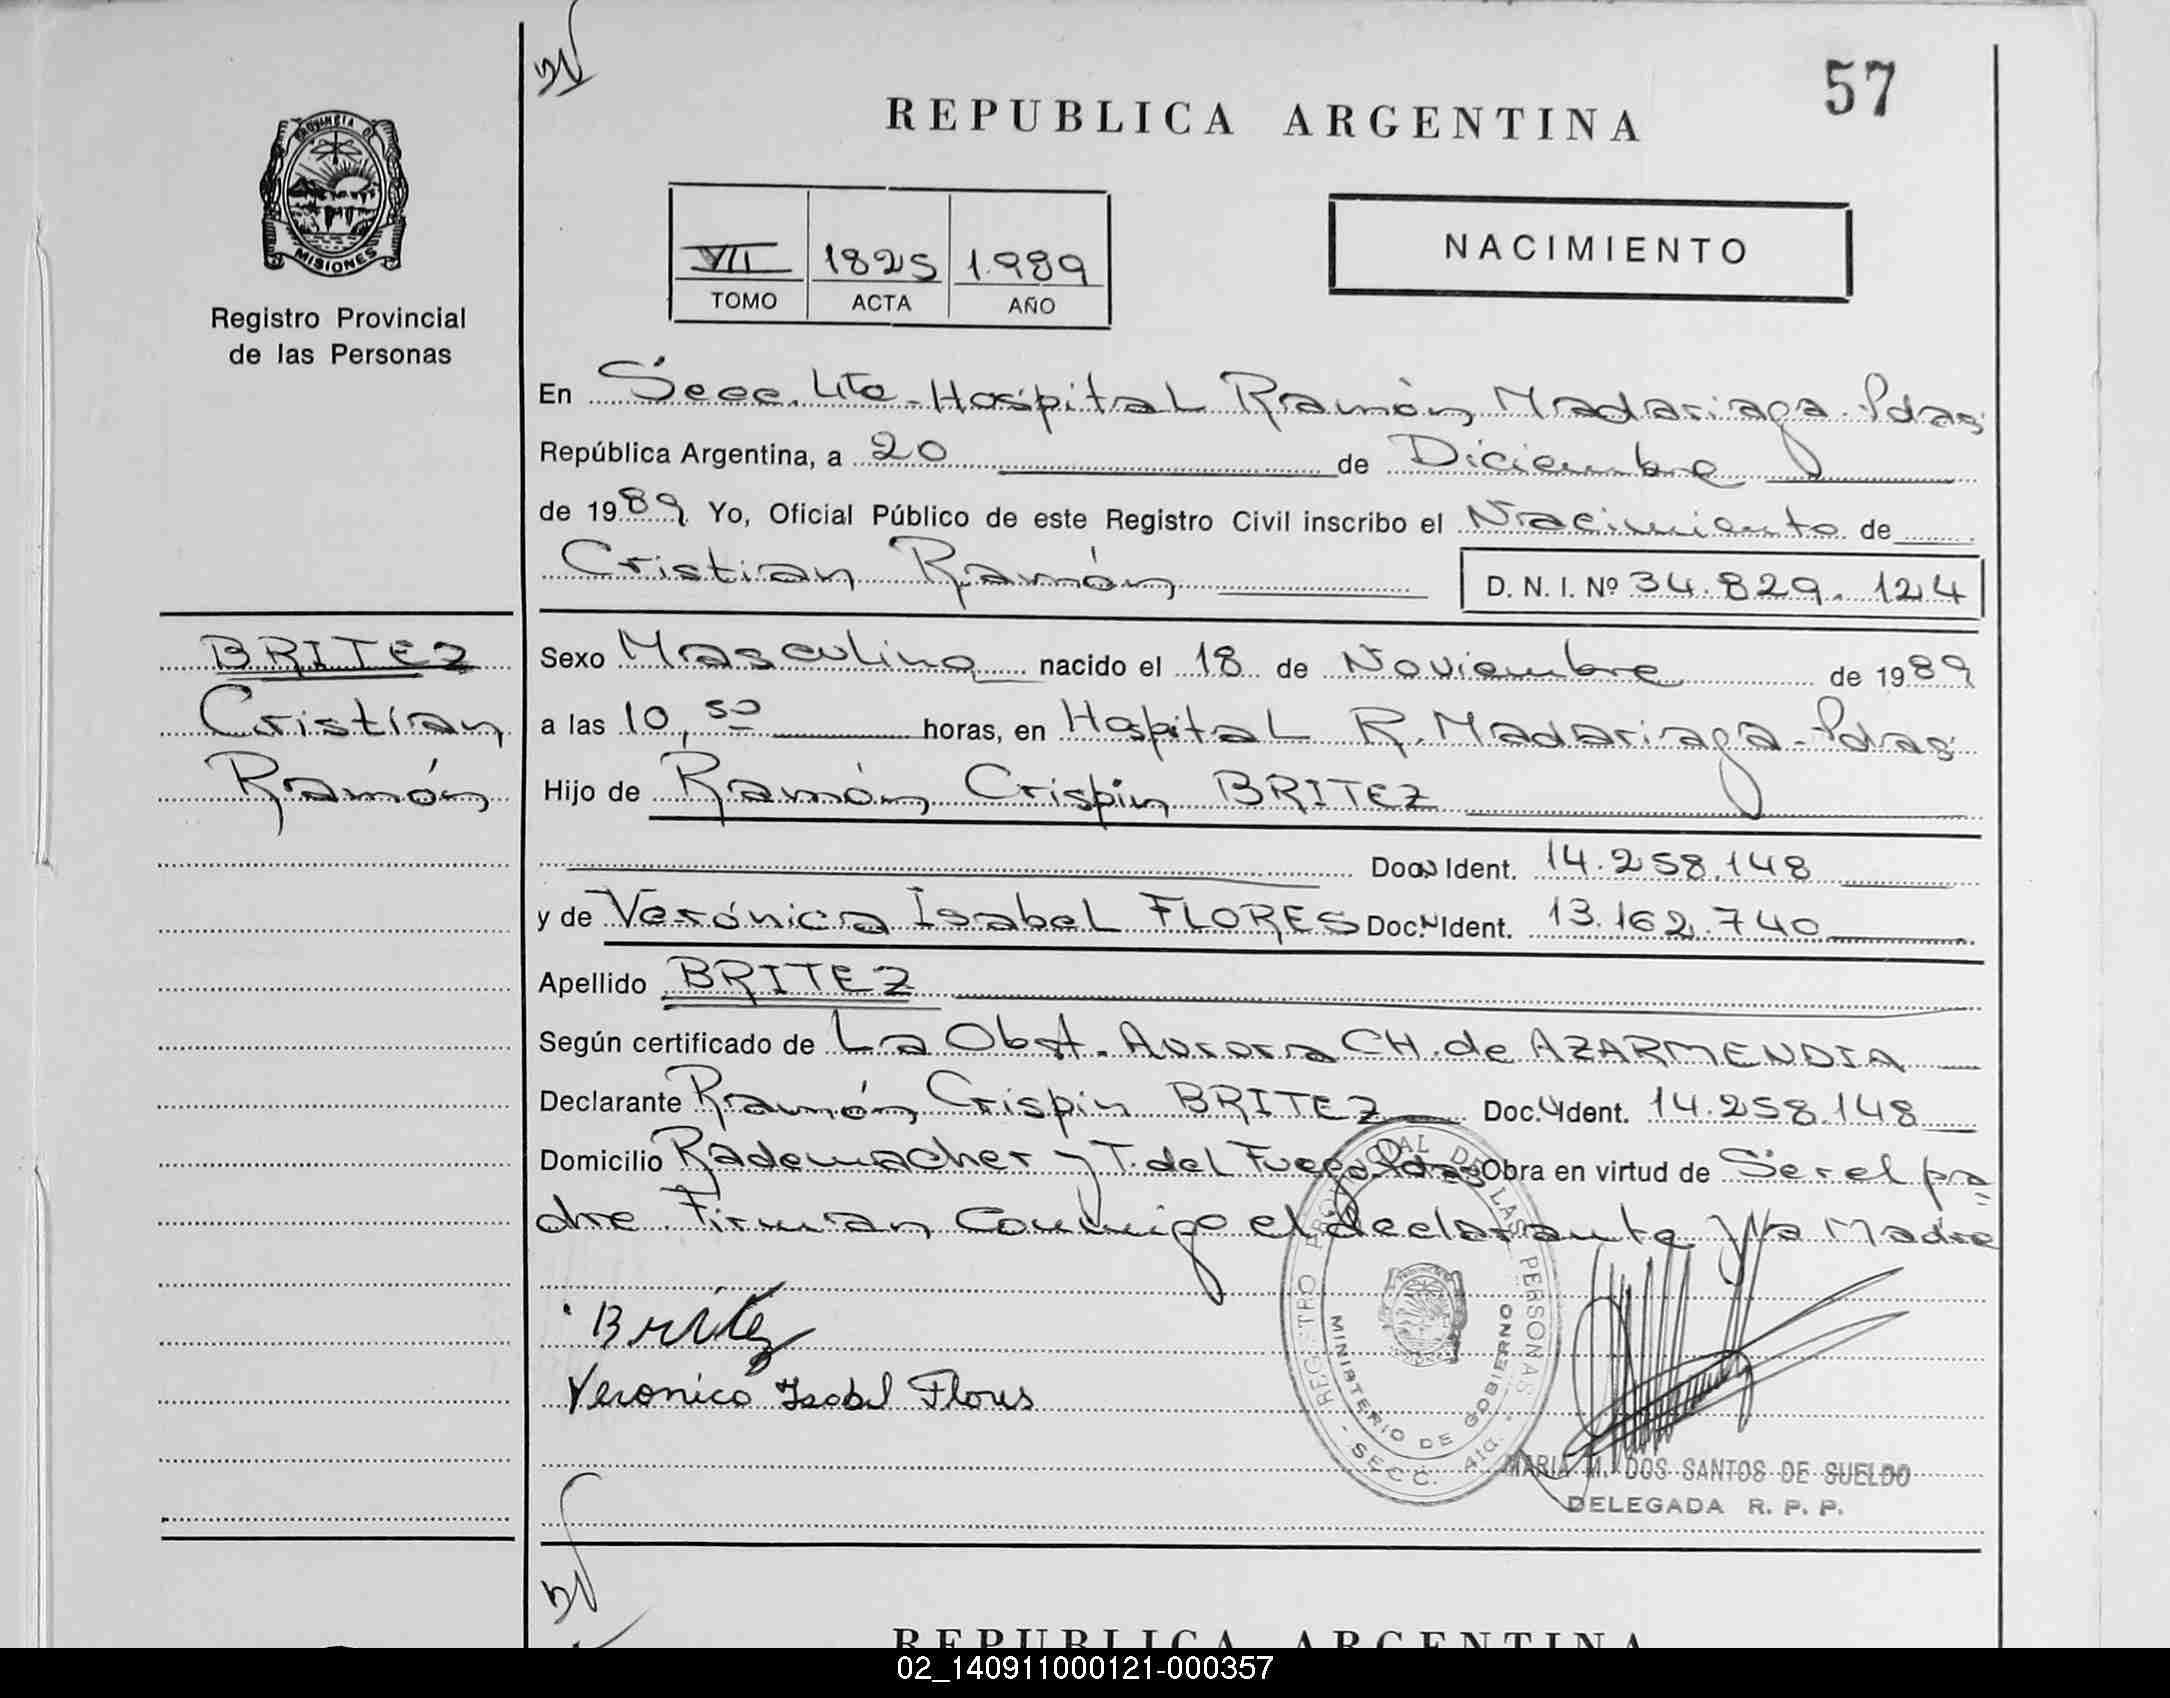 57
REPUBLICA ARGENTINA
PROVINCIA DE
MISIONES
Registro Provincial
de las Personas
VII 1825 1.989
TOMO ACTA AÑO
NACIMIENTO
En Secc. 4ta - Hospital Ramón Madariaga - Pdas
República Argentina, a 20 de Diciembre
de 1989 Yo, Oficial Público de este Registro Civil inscribo el Nacimiento de
Cristian Ramón
D. N. I. Nº 34.829.124
BRITEZ
Cristian
Ramón
Sexo Masculino nacido el 18 de Noviembre de 1989
a las 10,50 horas, en Hospital R. Madariaga - Pdas
Hijo de Ramón Crispin BRITEZ
Doc. Ident. 14.258.148
y de Verónica Isabel FLORES Doc. Ident. 13.162.740
Apellido BRITEZ
Según certificado de La Obst. Aurora CH. de AZARMENDIA
Declarante Ramón Crispin BRITEZ Doc. Ident. 14.258.148
Domicilio Rademacher y T. del Fuego. Pdas Obra en virtud de Ser el pa=
dre Firman Conmigo el declarante y la Madre
Britez
Veronica Isabel Flores
REGISTRO PROVINCIAL DE LAS PERSONAS
MINISTERIO DE GOBIERNO
- SECC. 4ta.
MARIA M. DOS SANTOS DE SUELDO
DELEGADA R. P. P.
REPUBLICA ARGENTINA
02_140911000121-000357